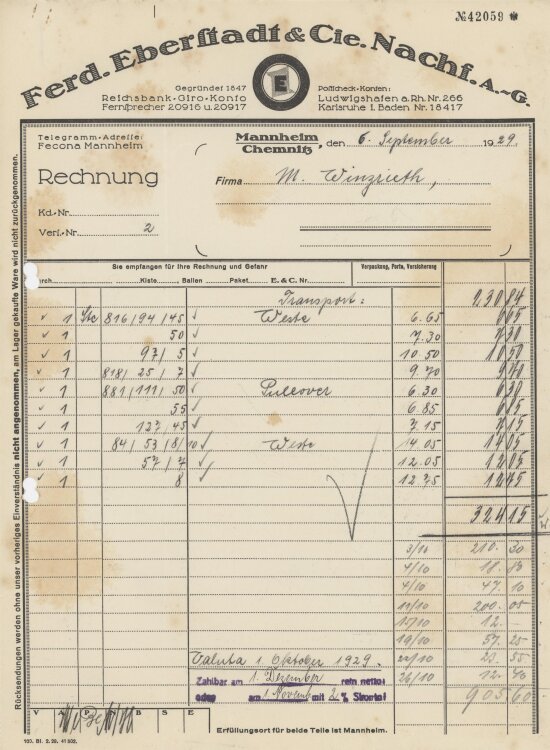 №42059
Ferd. Eberstadt & Cie. Nachf. A.-G.
E.
Gegründet 1847
Reichsbank-Giro-Konto
Fernsprecher 20916 u. 20917
Postscheck-Konten:
Ludwigshafen a. Rh. Nr. 266
Karlsruhe i. Baden Nr. 18417
Telegramm-Adresse:
Fecona Mannheim
Mannheim
Chemnitz, den 6. September 1929.
Rechnung
Firma M. Winzrieth,
Kd.-Nr.
Verf.-Nr. 2
Sie empfangen für Ihre Rechnung und Gefahr
Verpackung, Porto, Versicherung
durch Kiste Ballen Paket E. & C. Nr.
Transport: 230 84
1 Stc 816/94/45 Weste 6.65 6 65
1 50 7.30 7 30
1 97/5 10.50 10 50
1 818/25/7 9.70 9 70
1 881/111/50 Pullover 6.30 6 30
1 55 6.85 6 85
1 127/45 7.15 7 15
1 84/53/8/10 Weste 14.05 14 05
1 57/7 12.05 12 05
1 8 12.75 12 75
324 15
3/10 210. 30
4/10 18. 83
4/10 47. 10
11/10 200. 05
15/10 12. –
19/10 57. 25
22/10 23. 55
26/10 12. 40
905 60
Valuta 1. Oktober 1929.
Zahlbar am 1. Dezember rein netto
oder am 1. Novemb mit 2 % Skonto
V A P B S E
Erfüllungsort für beide Teile ist Mannheim.
103. Bl. 2. 29. 41 503.
Rücksendungen werden ohne unser vorheriges Einverständnis nicht angenommen, am Lager gekaufte Ware wird nicht zurückgenommen.